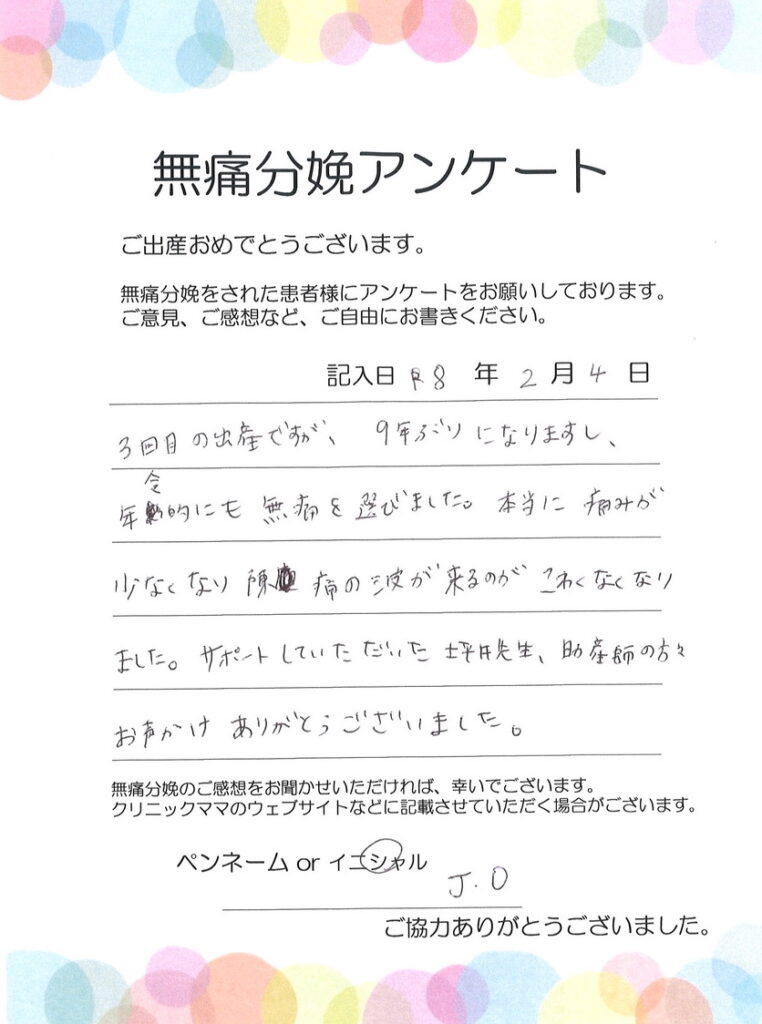 無痛分娩アンケート
ご出産おめでとうございます。
無痛分娩をされた患者様にアンケートをお願いしております。
ご意見、ご感想など、ご自由にお書きください。
記入日 R8 年 2 月 4 日
3回目の出産ですが、9年ぶりになりますし、
年令的にも無痛を選びました。本当に痛みが
少なくなり陣痛の波が来るのがこわくなくなり
ました。サポートしていただいた坪井先生、助産師の方々
お声かけありがとうございました。
無痛分娩のご感想をお聞かせいただければ、幸いでございます。
クリニックママのウェブサイトなどに記載させていただく場合がございます。
ペンネーム or イニシャル
J.O
ご協力ありがとうございました。